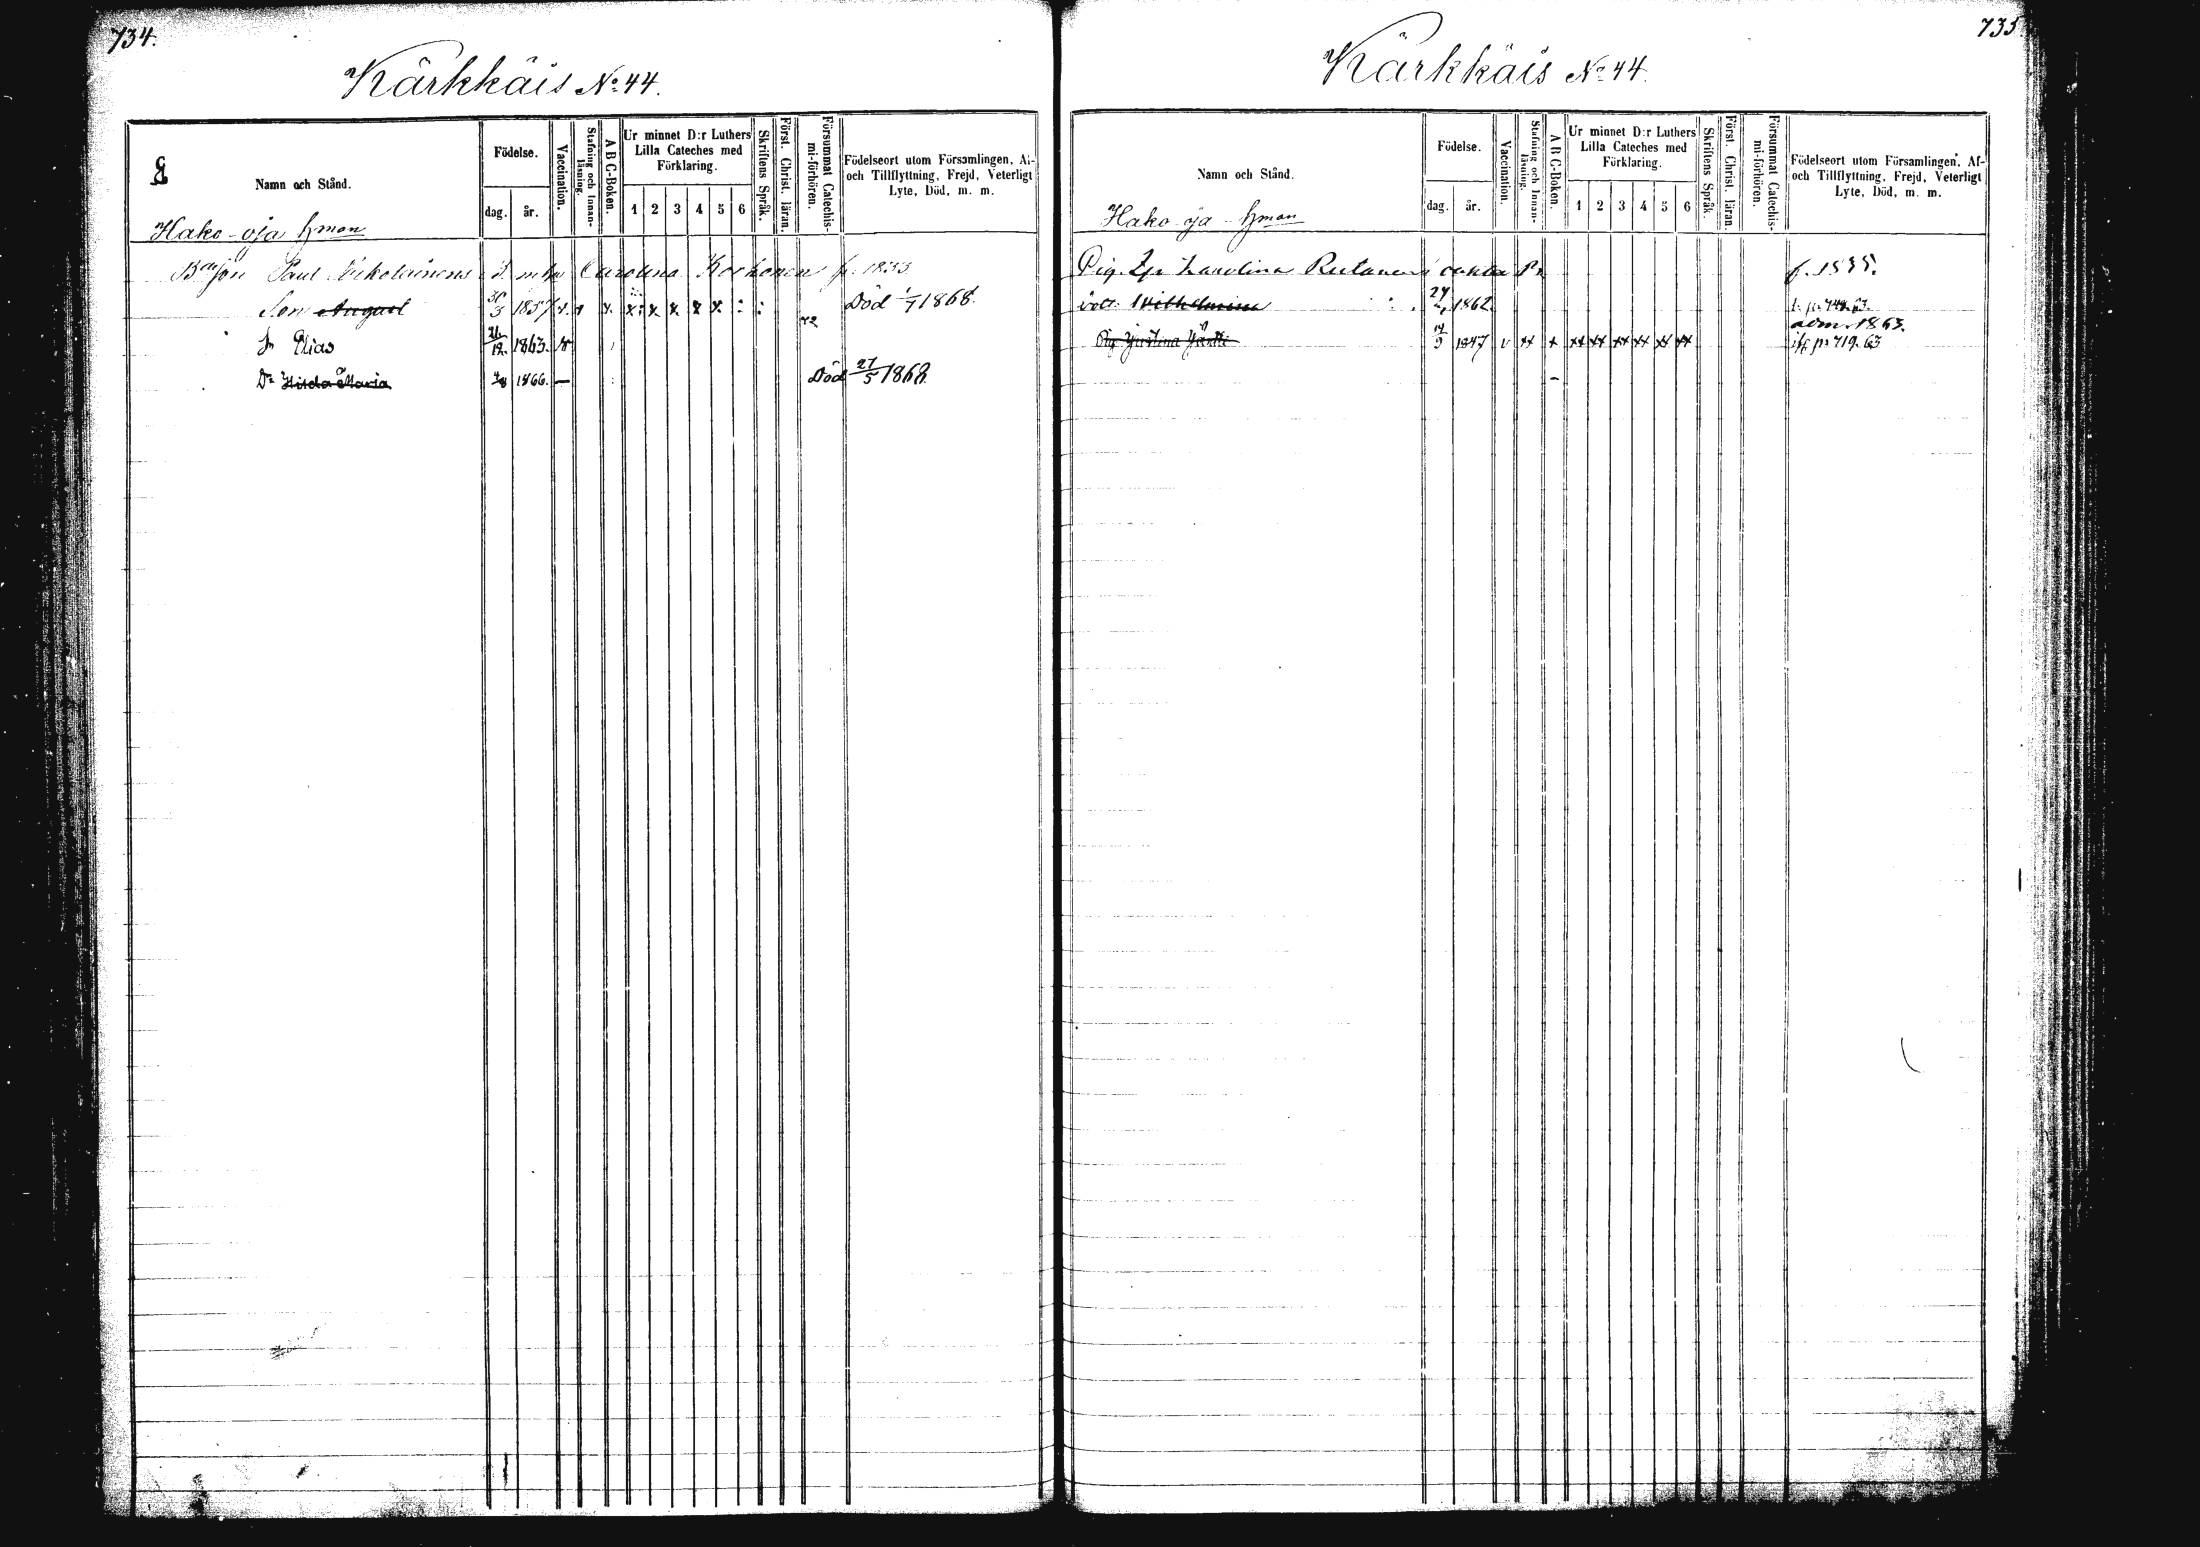 734.
Kärkkäis No 44.
Namn och Stånd.
Födelse.
dag.
år.
Vaccination.
Stafning och Innan-
läsning.
A B C-Boken.
Ur minnet D:r Luthers
Lilla Cateches med
Förklaring.
1 2 3 4 5 6
Skriftens Språk.
Först. Christ. läran.
Försummat Catechis-
mi-förhören.
Födelseort utom Församlingen, Af-
och Tillflyttning, Frejd, Veterligt
Lyte, Död, m. m.
Hako-oja
Paul Nikolainens Carolina Korhonen f. 1833
Son August 30/3 1857 v. x x x x x x x Död 1/7 1868.
Elias 21/12 1863. 72
Dr Hilda Maria 1866. — Död 27/5 1868.
735
Kärkkäis No 44.
Namn och Stånd.
Födelse.
dag.
år.
Vaccination.
Stafning och Innan-
läsning.
A B C-Boken.
Ur minnet D:r Luthers
Lilla Cateches med
Förklaring.
1 2 3 4 5 6
Skriftens Språk.
Först. Christ. läran.
Försummat Catechis-
mi-förhören.
Födelseort utom Församlingen, Af-
och Tillflyttning, Frejd, Veterligt
Lyte, Död, m. m.
Hako oja
Pig. f. 1835.
Wilhelmina 1862.
adm. 1863.
Justina 1847 v xx x xx xx xx xx xx xx p. 719. 63